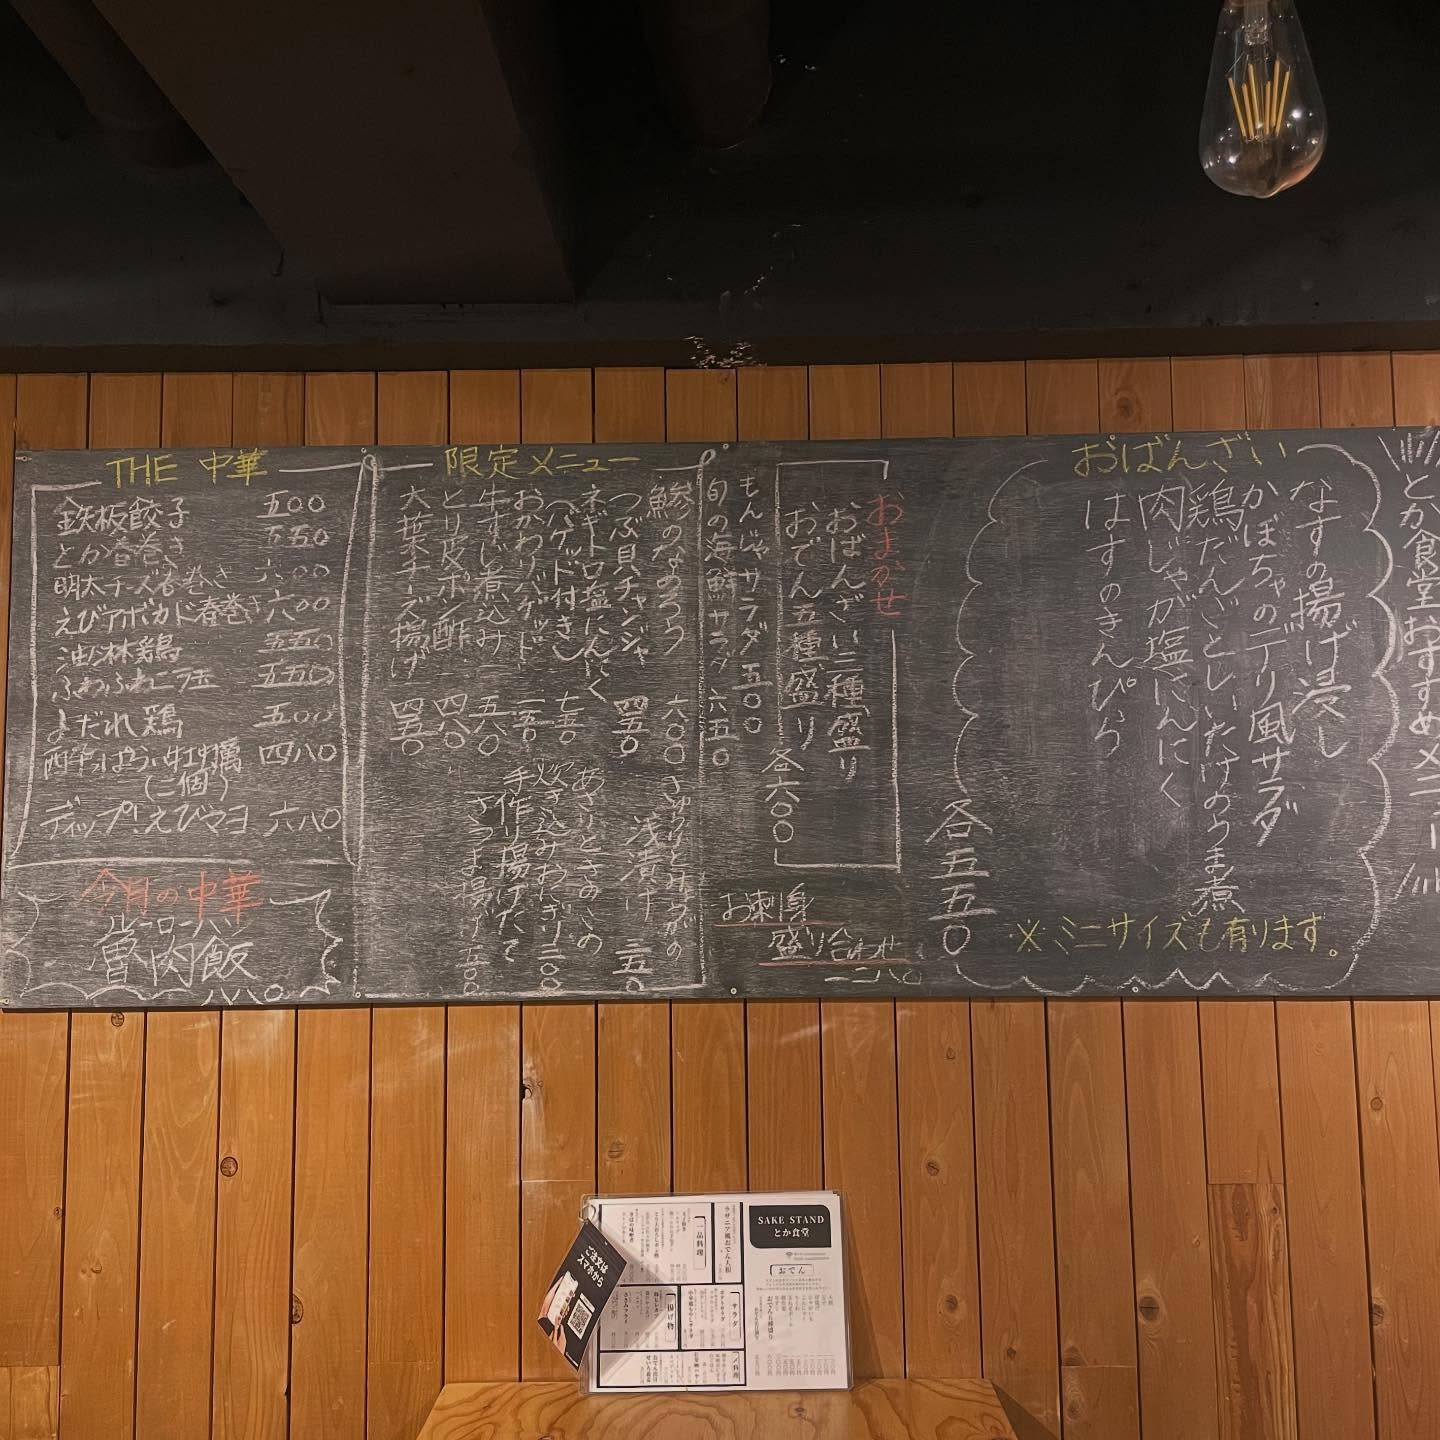 とか食堂おすすめメニュー
おばんざい
なすの揚げ浸し
かぼちゃのデリ風サラダ
鶏だんごとしいたけのうま煮
肉じゃが塩にんにく
はすのきんぴら
各五五〇
※ミニサイズも有ります。
おまかせ
おばんざい三種盛り
おでん五種盛り
各六〇〇
もんじゃサラダ 五〇〇
旬の海鮮サラダ 六五〇
お刺身
盛り合わせ
一二八〇
限定メニュー
鯵のなめろう 六〇〇
つぶ貝チャンジャ 四五〇
ネギトロ塩にんにく
(バゲット付き) 七五〇
おかわりバゲット 一五〇
牛すじ煮込み 五八〇
とり皮ポン酢 四八〇
大葉チーズ揚げ 四五〇
きゅうりとみょうがの
浅漬け 三五〇
あさりときのこの
炊き込みおにぎり 三〇〇
手作り揚げたて
さつま揚げ 五〇〇
THE 中華
鉄板餃子 五〇〇
とか春巻き 五五〇
明太チーズ春巻き 六〇〇
えびアボカド春巻き 六〇〇
油淋鶏 五五〇
ふわふわニラ玉 五五〇
よだれ鶏 五〇〇
酔っぱらい牡蠣 四八〇
(二個)
ディップ!えびマヨ 六八〇
今月の中華
ルーローハン
魯肉飯
八八〇
SAKE STAND
とか食堂
おでん
おでん五種盛り
ラザニア風おでん大根
一品料理
サラダ
揚げ物
〆料理
ご注文は
スマホから